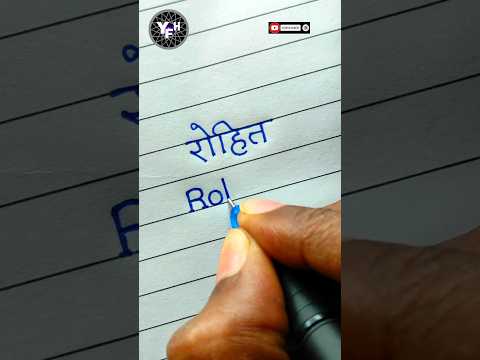 रोहित
Rol